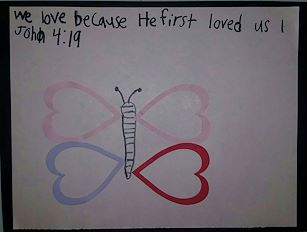 we love because He first loved us 1
John 4:19